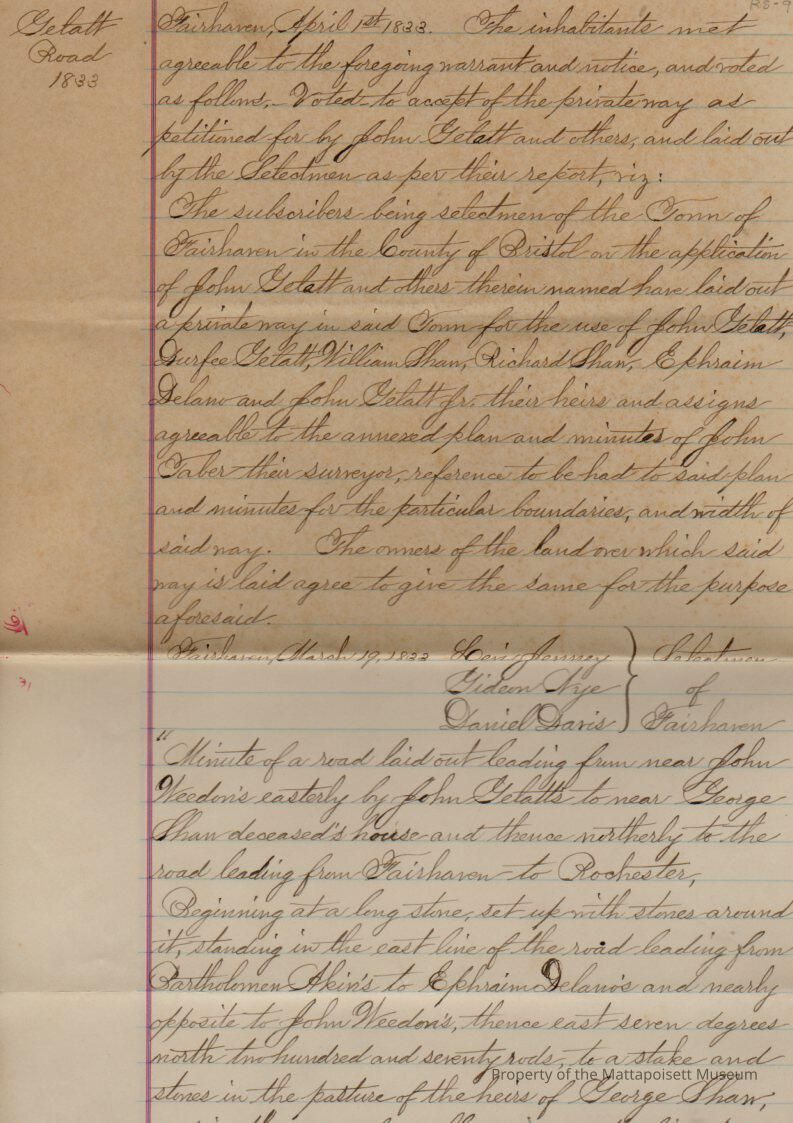 RS-9
Gelatt
Road
1833
Fairhaven, April 1st 1833. The inhabitants met
agreeable to the foregoing warrant and notice, and voted
as follows,- Voted to accept of the private way as
petitioned for by John Gelatt and others, and laid out
by the Selectmen as per their report, viz:
The subscribers being selectmen of the Town of
Fairhaven in the County of Bristol on the application
of John Gelatt and others therein named have laid out
a private way in said Town for the use of John Gelatt,
Durfee Gelatt, William Shaw, Richard Shaw, Ephraim
Delano and John Gelatt Jr. their heirs and assigns
agreeable to the annexed plan and minutes of John
Taber their surveyor, reference to be had to said plan
and minutes for the particular boundaries, and width of
said way. The owners of the land over which said
way is laid agree to give the same for the purpose
aforesaid.
Fairhaven, March 19, 1833 Levi Jenney } Selectmen
Gideon Nye of
Daniel Davis Fairhaven
"Minute of a road laid out leading from near John
Weedon's easterly by John Gelatt's to near George
Shaw deceased's house and thence northerly to the
road leading from Fairhaven to Rochester,
Beginning at a long stone, set up with stones around
it, standing in the east line of the road leading from
Bartholomew Akin's to Ephraim Delano's and nearly
opposite to John Weedon's, thence east seven degrees
north two hundred and seventy rods, to a stake and
stones in the pasture of the heirs of George Shaw,
Property of the Mattapoisett Museum